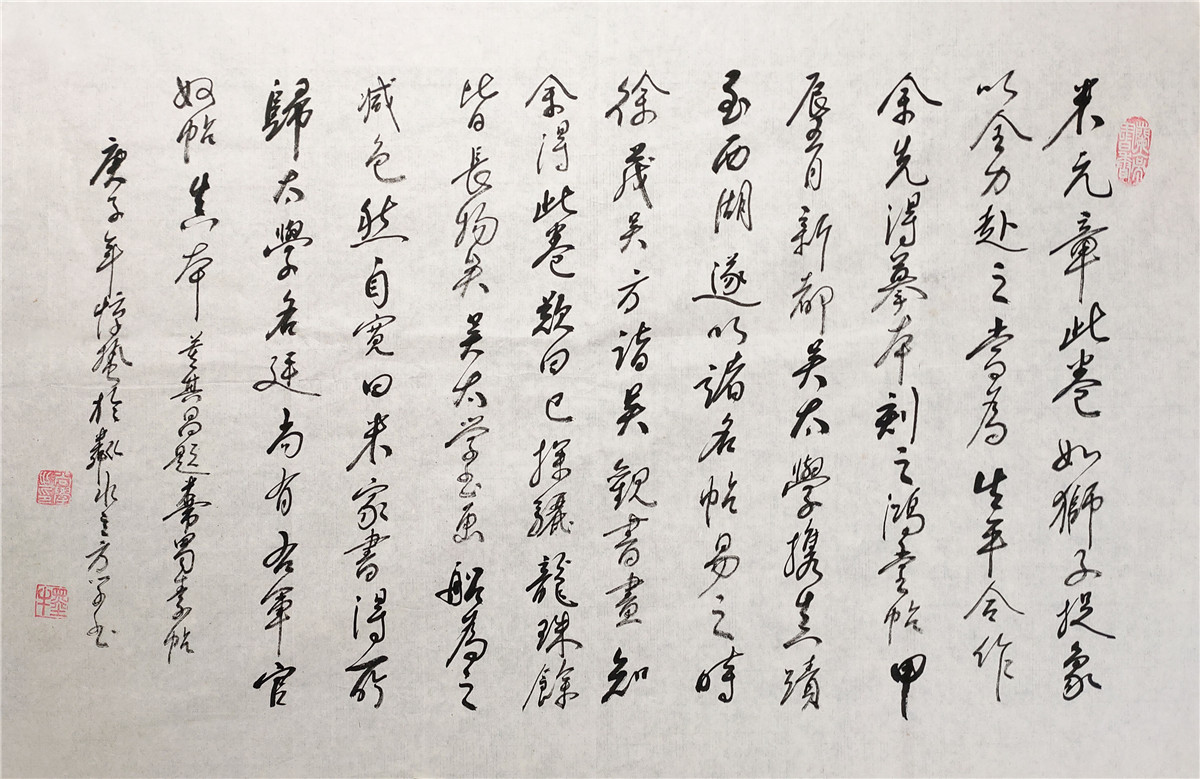 米元章此卷如獅子捉象
以全力赴之當為生平合作
余先得摹本刻之鴻堂帖甲
辰五月新都吴太學携真蹟
至西湖遂以諸名帖易之時
徐茂吴方詣吴觀書畫知
余得此卷歎曰已探驪龍珠餘
皆長物矣吴太学書畫船為之
减色然自寛曰米家書得所
歸太學名廷尚有右軍官
奴帖真本 董其昌題蜀素帖
庚子年 方学书